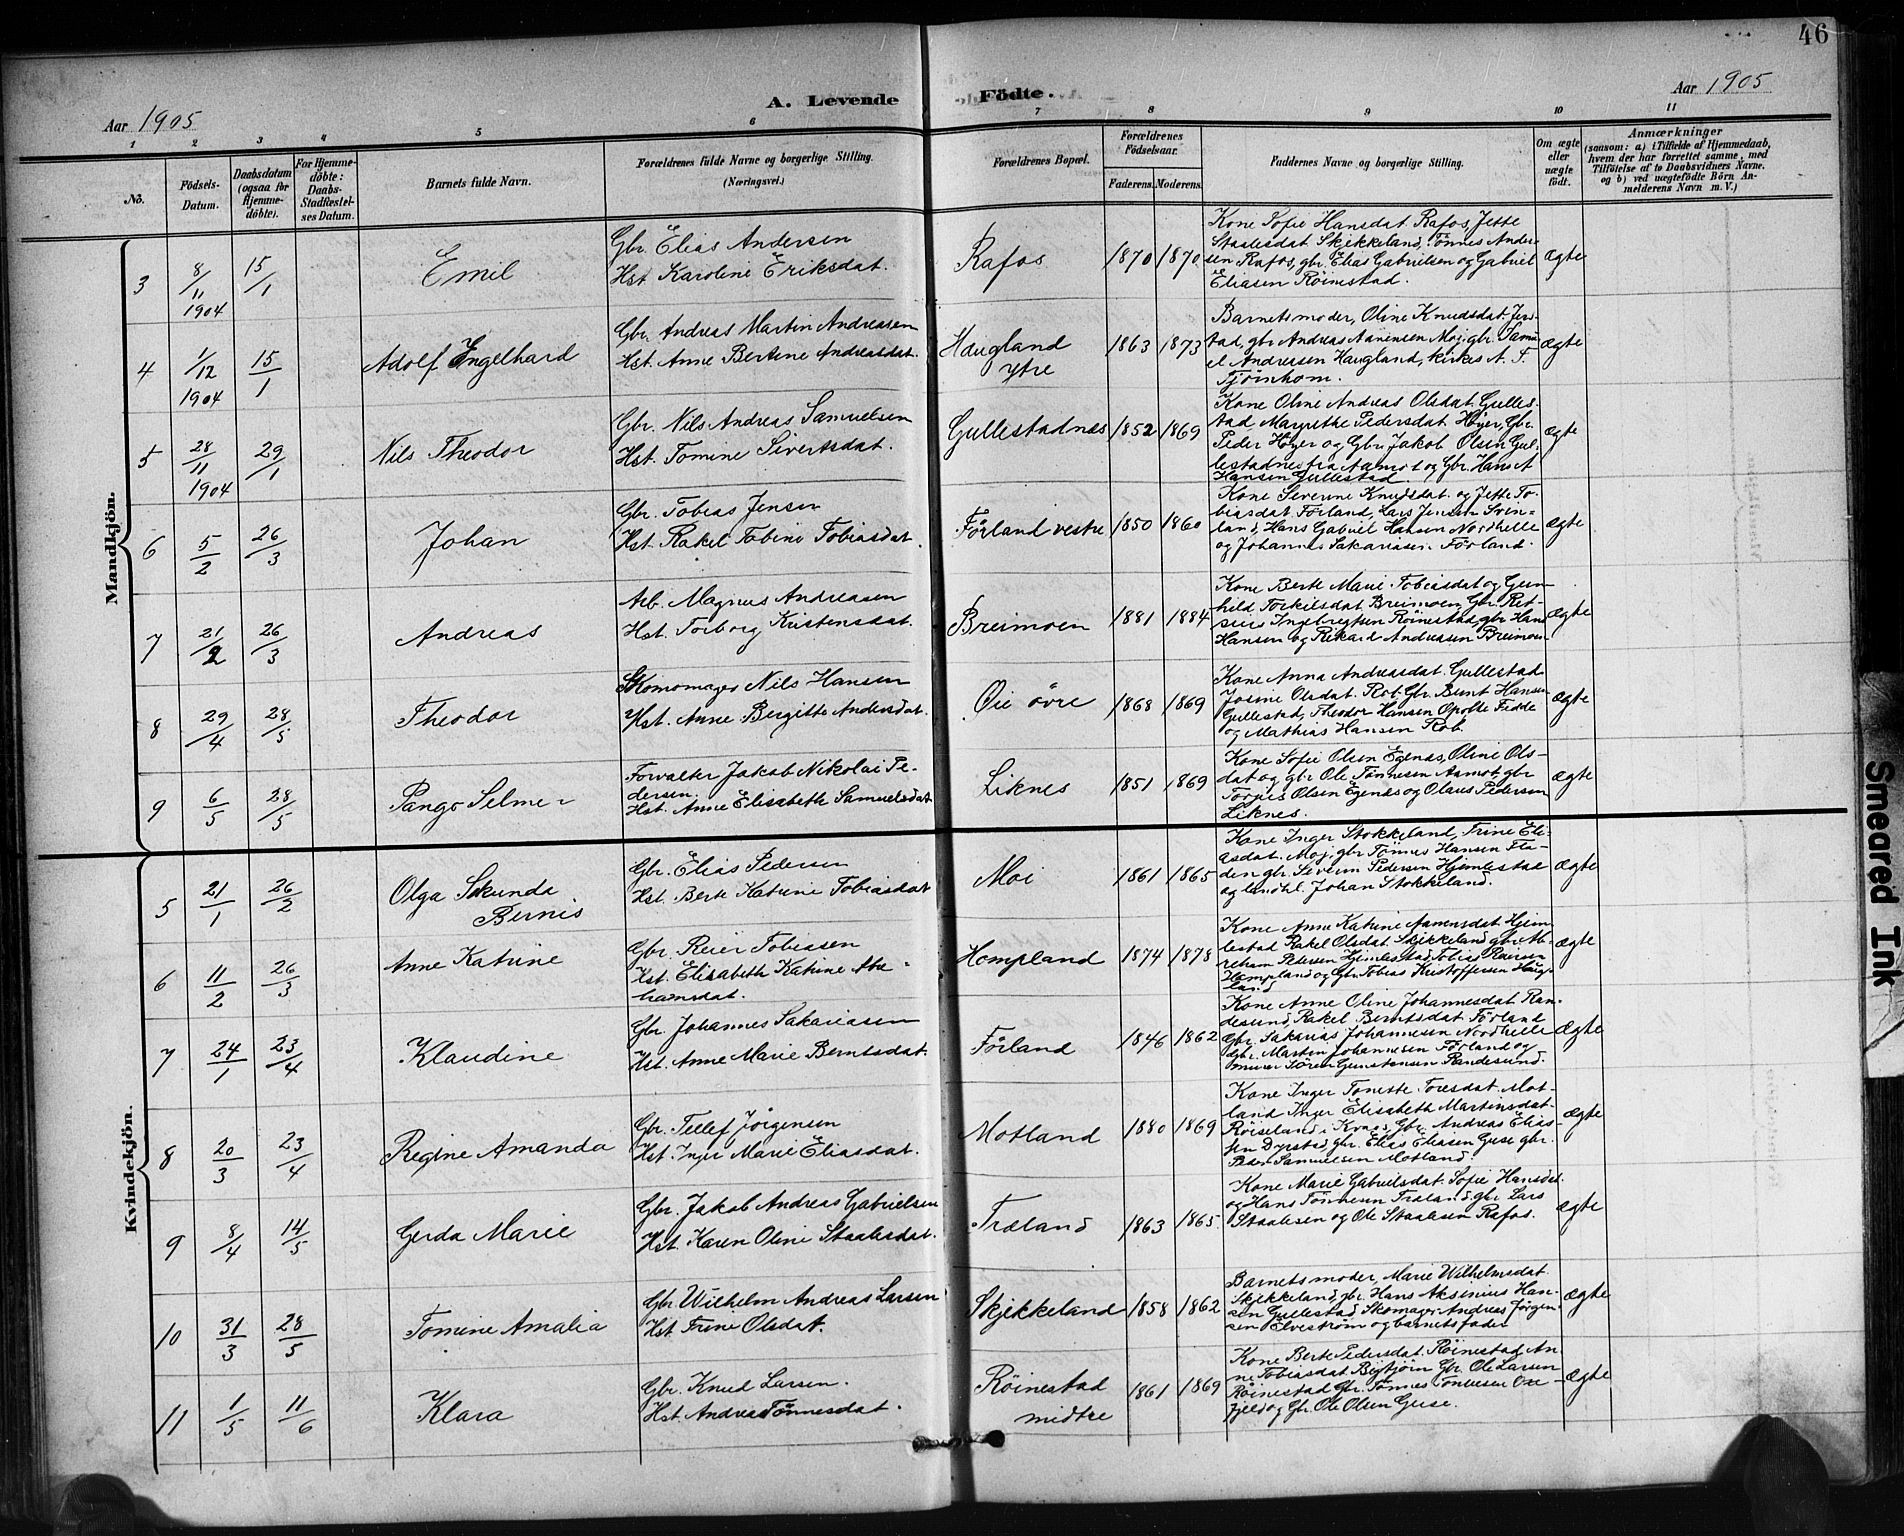 46
Aar 1905
A. Levende
Födte.
Aar 1905
1 2 3 4 5 6 7 8 9 10 11
No.
Födsels-
Datum.
Daabsdatum
(ogsaa for
Hjemme-
döbte).
For Hjemme-
döbte:
Daabs-
Stadfæstel-
ses Datum.
Barnets fulde Navn.
Forældrenes fulde Navne og borgerlige Stilling.
(Næringsvei.)
Forældrenes Bopæl.
Forældrenes
Födselsaar.
Faderens.
Moderens.
Faddernes Navne og borgerlige Stilling.
Om ægte
eller
uægte
födt.
Anmærkninger
(saasom: a) i Tilfælde af Hjemmedaab,
hvem der har forrettet samme, med
Tilföielse af to Daabsvidners Navne.
og b) ved uægtefödte Börn An-
melderens Navn m. V.)
Mandkjön.
3
8/11 1904
15/1
Emil
Gbr. Elias Andersen
Hst. Karoline Eriksdat.
Rafos
1870
1870
Kone Sofie Hansdat. Rafos, Jette
Staalesdat Skjekkeland, Tønnes Ander-
sen Rafos, gbr. Elias Gabrielsen og Gabriel
Eliasen Røinestad.
Ægte
4
1/12 1904
15/1
Adolf Engelhard
Gbr. Andreas Martin Andreassen
Hst. Anne Bertine Andreasdat.
Haugland
ytre
1863
1873
Barnets moder, Oline Knudsdat. Jers-
tad, gbr Andreas Aanensen Moj, gbr. Samu-
el Andreasen Haugland, kirkes. A. T.
Tjørnhom.
Ægte
5
28/11 1904
29/1
Nils Theodor
Gbr. Nils Andreas Samuelsen
Hst. Tomine Sivertsdat.
Gullestadnæs
1852
1869
Kone Oline Andreas Olsdat. Gulles-
tad Margrethe Pedersdat Høyer, Gbr.
Peder Høyer og Gbr. Jakob Olsen Gul-
lestadnes fra Aamot og Gbr. Hans A
Hansen Gullestad.
Ægte
6
5/2
26/3
Johan
Gbr. Tobias Jensen
Hst. Rakel Tobine Tobiasdat.
Førland vestre
1850
1860
Kone Severine Knudsdat. og Jette To-
biasdat. Førland, Lars Jensen Svin-
land, Hans Gabriel Hansen Nordhelle
og Johannes Sakariasen Førland.
Ægte
7
21/2
26/3
Andreas
Arb. Magnus Andreasen
Hst. Torborg Kristensdat.
Breimoen
1881
1884
Kone Berte Marie Tobiasdat og Gun-
hild Torkilsdat Breimoen, Gbr. Ret-
sius Ingebregtsen Røinestad, gbr Hans
Hansen og Rikard Andreasen Breimoen
Ægte
8
29/4
28/5
Theodor
Skomager Nils Hansen
Hst. Anne Birgitte Andersdat.
Øie øvre
1868
1869
Kone Anna Andreasdat. Gullestad
Josine Olsdat. Rob. Gbr. Bernt Hansen
Gullestad, Theodor Hansen Opofte Fidde
og Mathias Hansen Rob.
Ægte
9
6/5
28/5
Pango Selmer
Forvalter Jakob Nikolai Pe-
dersen.
Hst. Anne Elisabeth Samuelsdat
Liknes
1851
1869
Kone Sofie Olsen Egenæs, Oline Ols-
dat og gbr Ole Tønnesen Aamot, gbr
Tørres Olsen Egenæs og Olaus Pedersen
Liknes.
Ægte
Kvindekjön.
5
21/1
26/2
Olga Sekunda
Bernis
Gbr. Elias Pedersen
Hst. Berte Katrine Tobiasdat
Moi
1861
1865
Kone Inger Stokkeland, Trine Eli-
asdat. Moj, gbr Tønnes Hansen Fla-
den gbr. Severin Pedersen Hjemlestad
og landhl. Johan Stokkeland.
Ægte
6
11/2
26/3
Anne Katrine
Gbr. Reier Tobiasen
Hst. Elisabeth Katrine Abra-
hamsdat.
Hompland
1874
1878
Kone Anne Katrine Aanensdat Hjem-
lestad Rakel Olsdat. Skjekkeland, gbr Ab-
raham Pedersen Hjemlestad, Tobias Reiersen
Hompland og Gbr Tobias Kristoffersen Haug-
land
Ægte
7
24/1
23/4
Klaudine
Gbr. Johannes Sakariasen
Hst. Anne Marie Berntsdat.
Førland
1846
1862
Kone Anne Oline Johannesdat Ran-
desund, Rakel Berntsdat Førland
Gbr. Sakarias Johannesen Nordhelle
gbr. Martin Johannesen Førland og
murer Søren Gunstensen Randesund.
Ægte
8
20/3
23/4
Regine Amanda
Gbr. Tellef Jørgensen
Hst. Inger Marie Eliasdat.
Motland
1880
1869
Kone Inger Toneste Toresdat Mot-
land Inger Elisabeth Martinsdat-
Røiseland i Kvaas, Gbr. Andreas Elias-
sen Dyrstad, gbr. Elias Eliasen Guse gbr.
Peder Samuelsen Motland.
Ægte
9
8/4
14/5
Gerda Marie
Gbr. Jakob Andreas Gabrielsen
Hst. Karen Oline Staalesdat.
Træland
1863
1865
Kone Marie Gabrielsdat. Sofie Hansdat.
og Hans Tønnesen Træland, gbr Lars
Staalesen og Ole Staalesen Rafos.
Ægte
10
31/3
28/5
Tomine Amalia
Gbr. Wilhelm Andreas Larsen
Hst. Trine Olsdat.
Skjekkeland
1858
1862
Barnets moder, Marie Wilhelmsdat.
Skjekkeland, gbr. Hans Aksinius Han-
sen Gullestad Skomager Andreas Jørgen-
sen Elvestrøm og barnets fader
Ægte
11
1/5
11/6
Klara
Gbr. Knud Larsen.
Hst. Andrea Tønnesdat.
Røinestad
midtre
1861
1869
Kone Berte Pedersdat. Røinestad, An-
ne Tobiasdat Bigtjørn Gbr. Ole Larsen
Røinestad Gbr. Tønnes Tønnesen Oxe-
fjeld og Gbr. Ole Olsen Guse.
Ægte
Smeared Ink